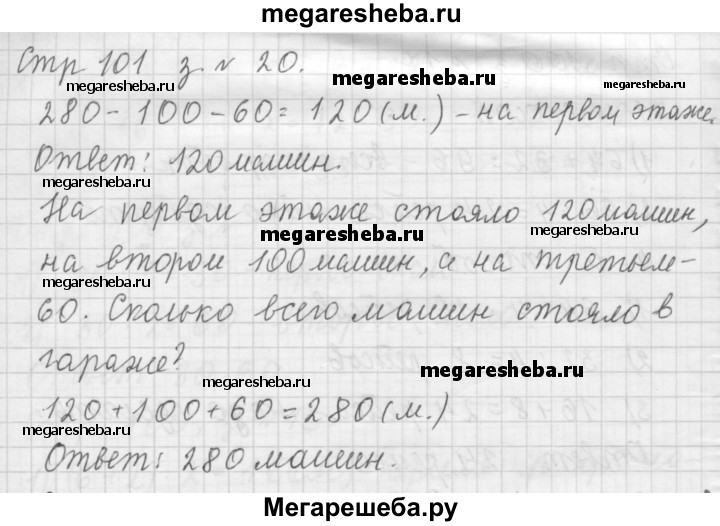 megaresheba.ru
Стр 101 з. № 20.
megaresheba.ru megaresheba.ru megaresheba.ru
280-100-60=120(м.)-на первом этаже.
Ответ: 120 машин.
megaresheba.ru
На первом этаже стояло 120 машин,
megaresheba.ru
на втором 100 машин, а на третьем-
megaresheba.ru
60. Сколько всего машин стояло в
гараже?
megaresheba.ru megaresheba.ru
120+100+60=280(м.)
megaresheba.ru
Ответ: 280 машин.
Мегарешеба.ру